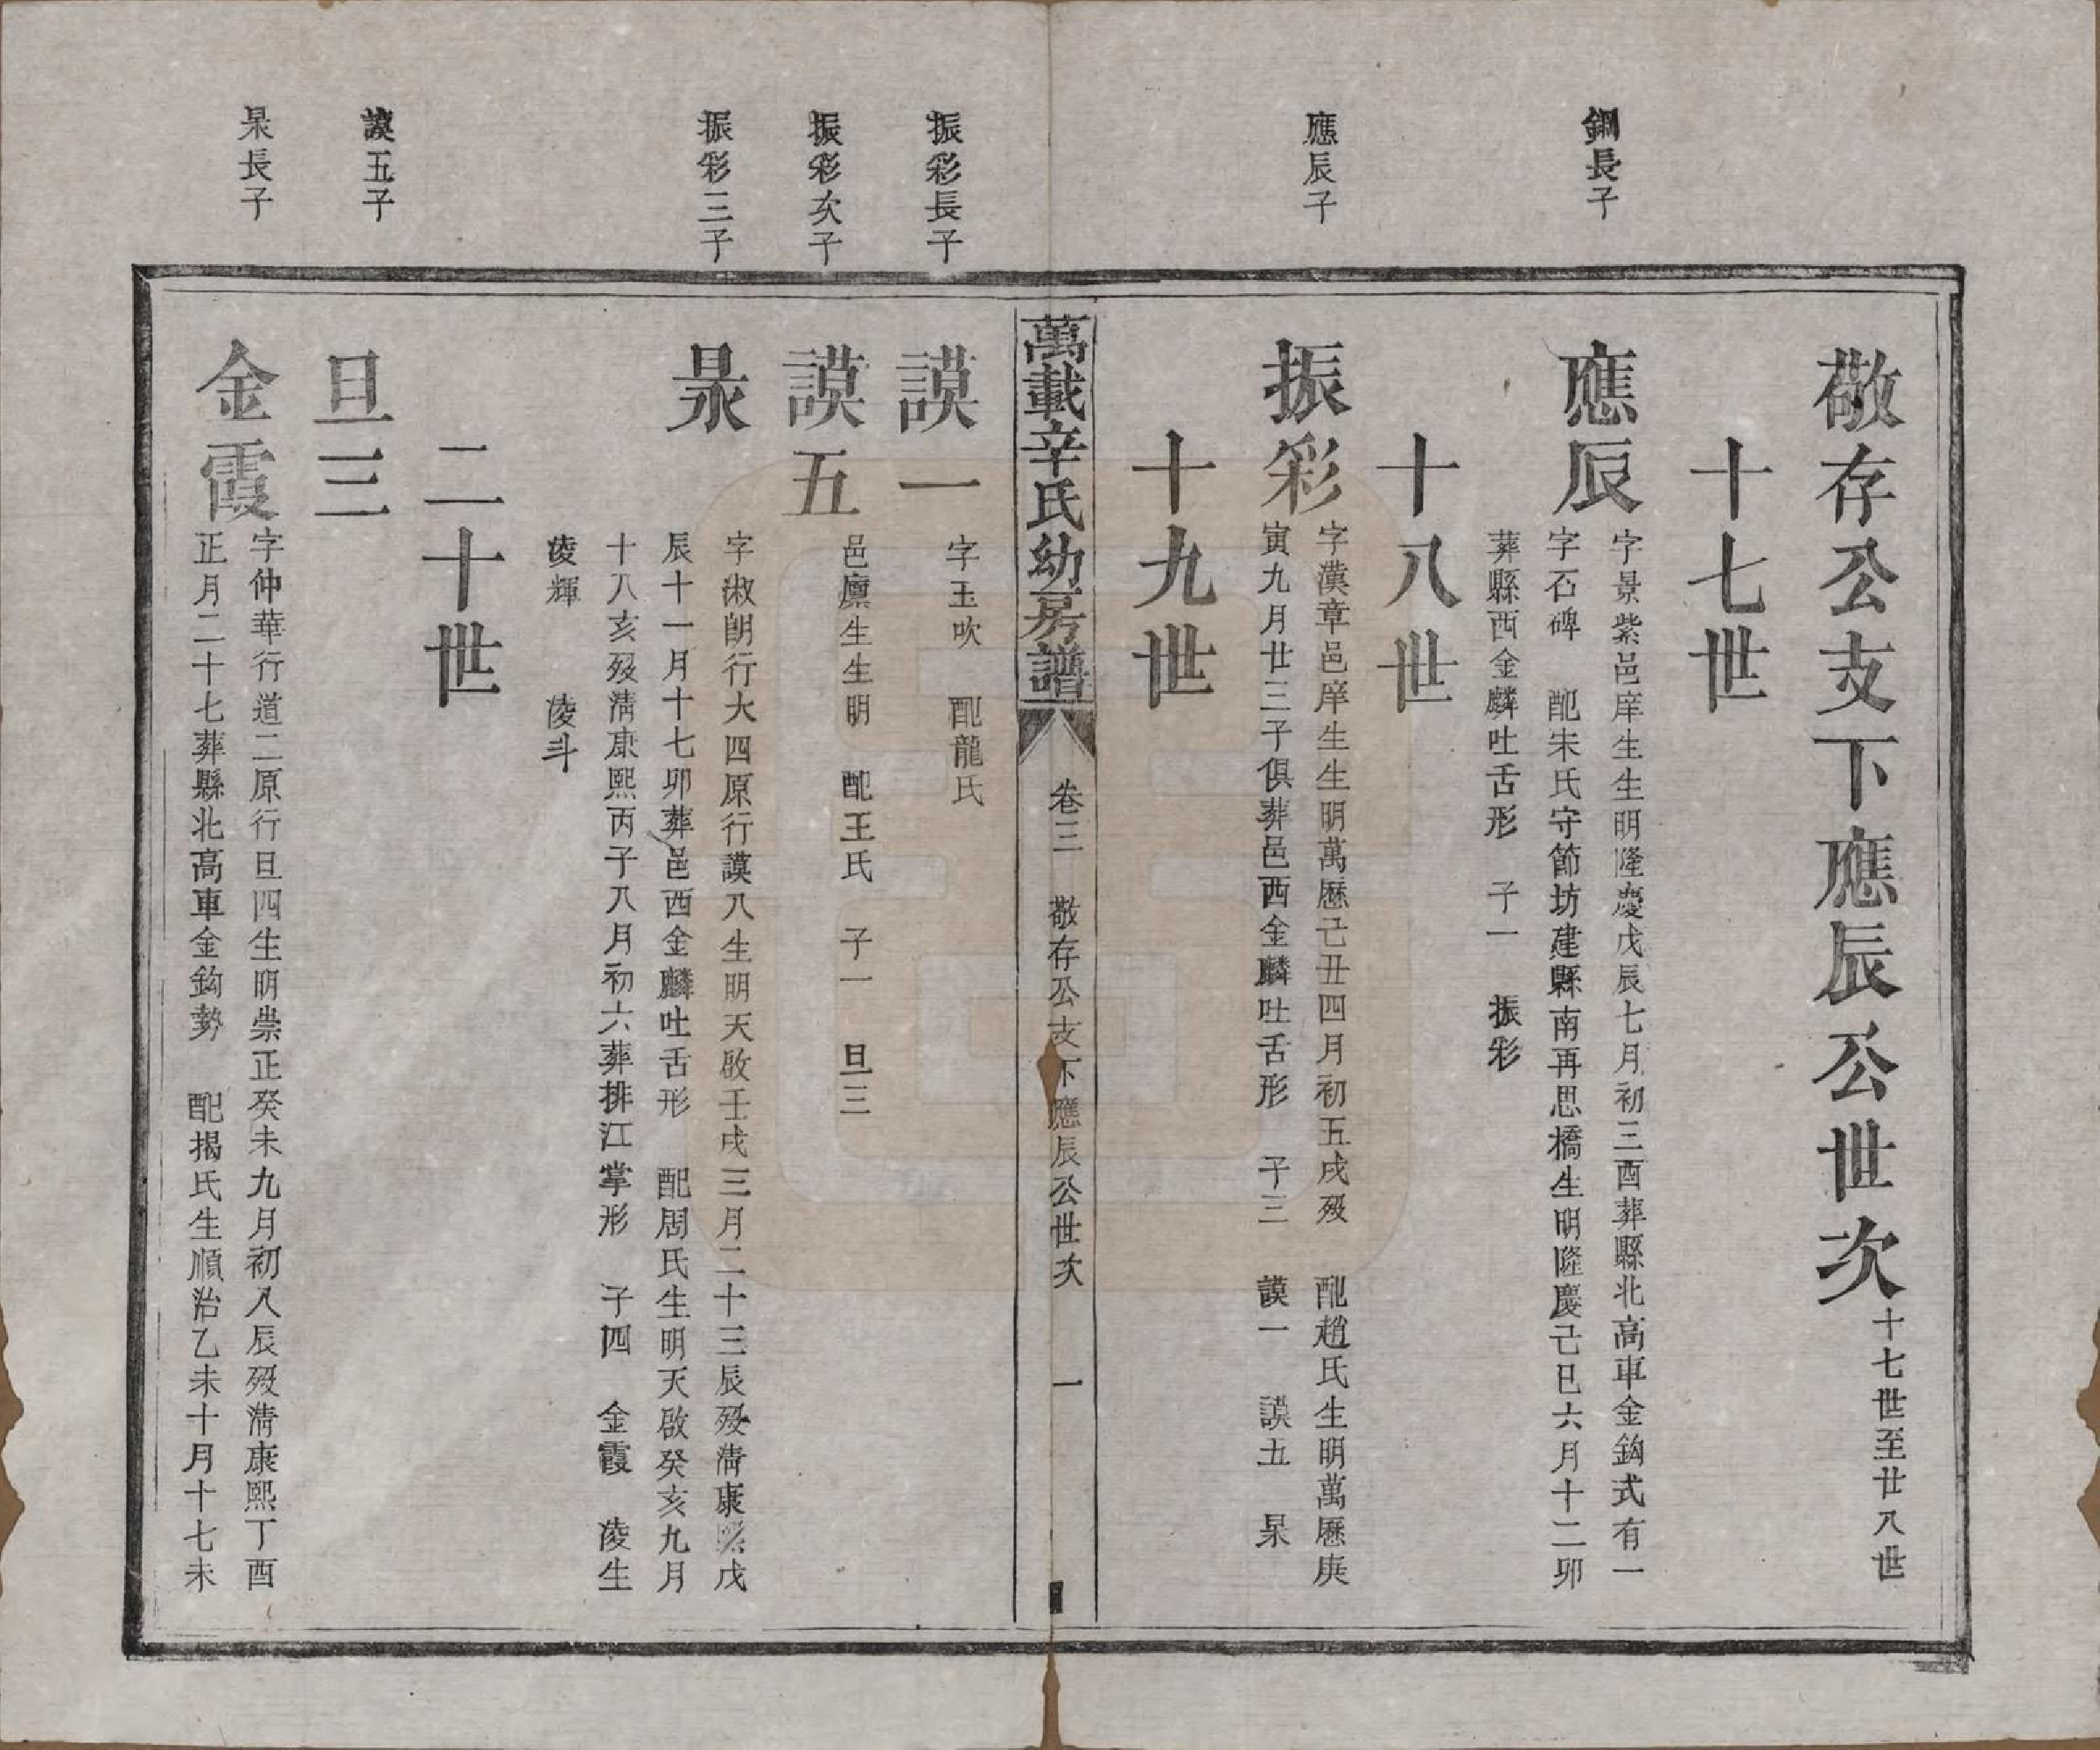 敬存公支下應辰公世次十七世至廿八世
十七世
鋼長子
應辰
字景紫邑庠生生明隆慶戊辰七月初三酉葬縣北高車金鈎式有一
字石碑　配宋氏守節坊建縣南再思橋生明隆慶己巳六月十二卯
葬縣西金麟吐舌形　子一　振彩
十八世
應辰子
振彩
字漢章邑庠生生明萬曆己丑四月初五戌歿　配趙氏生明萬曆庚
寅九月廿三子俱葬邑西金麟吐舌形　子三　謨一　謨五　杲
十九世
萬載辛氏幼房譜
卷三　敬存公支下應辰公世次　一
振彩長子
謨一　字玉吹　配龍氏
振彩次子
謨五　邑廩生生明　配王氏　子一　旦三
振彩三子
杲
字淑朗行大四原行謨八生明天啟壬戌三月二十三辰歿淸康熙戊
辰十一月十七卯葬邑西金麟吐舌形　配周氏生明天啟癸亥九月
十八亥歿淸康熙丙子八月初六葬排江掌形　子四　金霞　凌生
凌輝　凌斗
二十世
謨五子
旦三
杲長子
金霞
字仲華行道二原行旦四生明崇正癸未九月初八辰歿淸康熙丁酉
正月二十七葬縣北高車金鈎勢　配揭氏生順治乙未十月十七未